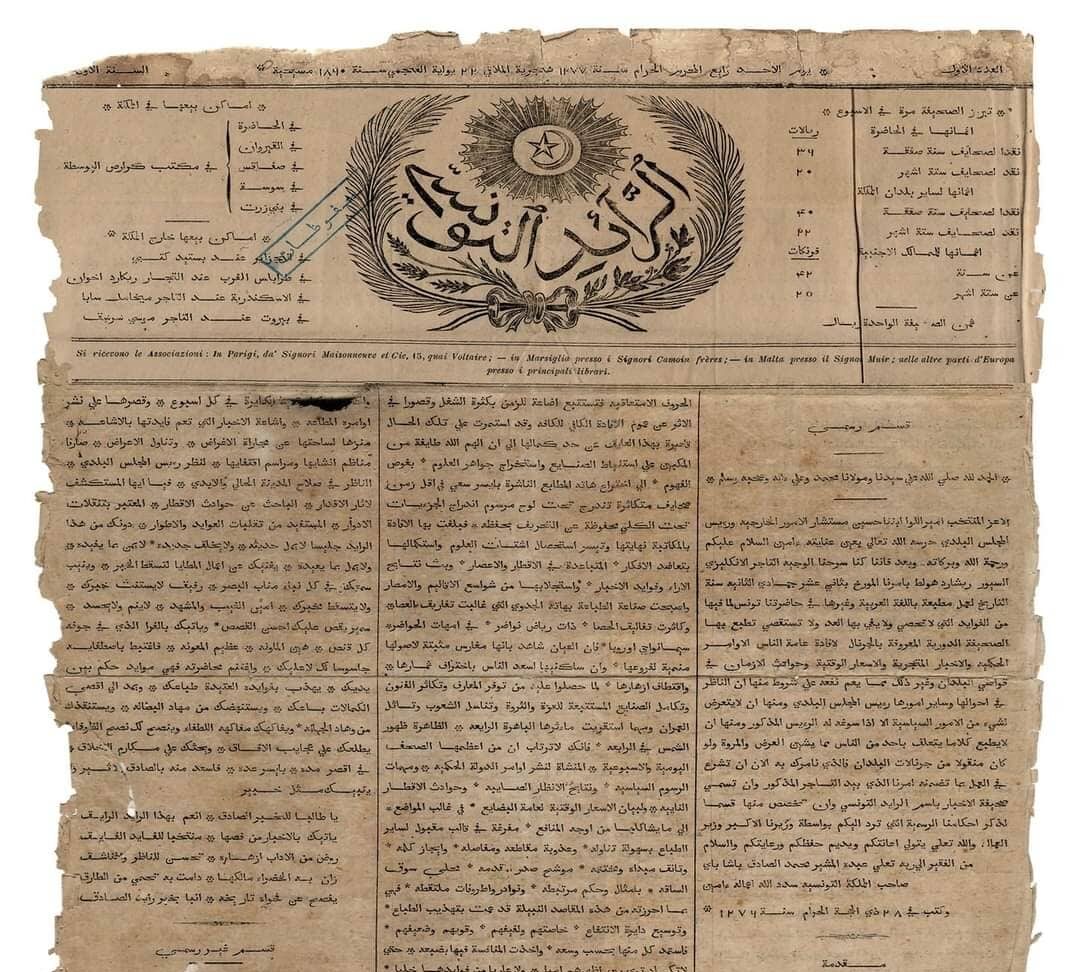 العدد الاول
يوم الاحد رابع المحرم الحرام سنة ١٢٧٧ هجرية الملاقي ٢٢ يولية العجمي سنة ١٨٦٠ مسيحية
السنة الاولى
تبرز الصحيفة مرة في الاسبوع
اثمانها في الحاضرة ريالات
نقدا لصحايف سنة صفقة ٣٦
نقد لصحايف ستة اشهر ٢٠
اثمانها لساير بلدان المملكة
نقدا لصحايف سنة صفقة ٤٠
نقد لصحايف ستة اشهر ٢٢
اثمانها للممالك الاجنبية فرنكات
عن سنة ٤٢
عن ستة اشهر ٢٥
ثمن الصحيفة الواحدة ريال
الرائد التونسي
اماكن بيعها في المملكة
في الحاضرة
في القيروان
في صفاقس
في سوسة
في بنزرت
في مكتب كوارص البوسطة
اماكن بيعها خارج المملكة
عند
في طرابلس الغرب عند التجار ريكارد اخوان
في الاسكندرية عند التاجر ميخايل سابا
في بيروت عند التاجر
Si ricevono le Associazioni : In Parigi, da' Signori Maisonneuve et Cie, 15, quai Voltaire ; — in Marsiglia presso i Signori Camoin frères ; — in Malta presso il Signor Muir ; nelle altre parti d'Europa
presso i principali librari.
قسم رسمي
الحمد لله صلى الله على سيدنا ومولانا محمد وعلى ءاله وصحبه وسلم
الاعز المنتخب امير اللوا ابننا حسين مستشار الامور الخارجيه ورييس
المجلس البلدي حرسه الله تعالى بعين عنايته ءامين السلام عليكم
ورحمة الله وبركاته وبعد فاننا كنا سرحنا الوجيه التاجر الانكليزي
السنيور ريشارد هولط بامرنا المورخ بثاني عشر جمادي الثانية سنة
التاريخ لعمل مطبعة باللغة العربية وغيرها في حاضرتنا تونس لما فيها
من الفوايد التي لا تحصى ولا يفي بها العد ولا تستقصي تطبع بها
الصحيفة الدورية المعروفة بالجرنال لافادة عامة الناس الاوامر
الحكميه والاخبار المتجرية والاسعار الوقتية وحوادث الازمان في
قواصي البلدان وغير ذلك مما يعم نفعه على شروط منها ان الناظر
في احوالها وساير امورها رييس المجلس البلدي ومنها ان لا يتعرض
لشيء من الامور السياسية الا اذا سوغه له الرييس المذكور ومنها ان
لا يطبع كلاما يتعلق باحد من الناس مما يشين العرض والمروة ولو
كان منقولا من جرنالات البلدان فالذي نامرك به الان ان تشرع
في العمل بما تضمنه امرنا الذي بيد التاجر المذكور وان تسمي
صحيفة الاخبار باسم الرايد التونسي وان تخصص منها قسما
لذكر احكامنا الرسمية التي ترد اليكم بواسطة وزيرنا الاكبر وزير
العمالة والله تعالى يتولى اعانتكم ويديم حفظكم ورعايتكم والسلام
من الفقير الى ربه تعالى عبده المشير محمد الصادق باشا باي
صاحب المملكة التونسيه سدد الله اعماله ءامين
وكتب في ٢٨ ذي الحجة الحرام سنة ١٢٧٦
مقدمة
الحروف اضاعة للزمن بكثرة الشغل وقصورا في
الاثر عن عموم الافادة الكافي للكافه وقد استمرت على تلك الحال
عن حد كمالها الى ان الهم الله طايفة من
على استنباط الصنايع واستخراج جواهر العلوم بغوص
الفهوم الى اختراع هاته المطابع الناشرة بايسر سعي في اقل زمن
صحايف متكاثرة تندرج تحت لوح مرسوم اندراج الجزييات
تحت الكلي محفوظة عن التحريف بحفظه فبلغت بها الافادة
بالمكاتبة نهايتها وتيسر استحصال اشتات العلوم واستكمالها
بتعاضد الافكار المتباعدة في الاقطار والاعصار وبث نتايج
الاراء وفوايد الاخبار واستجلابها من شواسع الاقاليم والامصار
واصبحت صناعة الطباعة بهاته الجدوي التي
ذات رياض نواضر في امهات الحواضر
سيما نواحي اوروبا فان العيان شاهد بانها مغارس مثبتة لاصولها
منمية لفروعها وان ساكنيها اسعد الناس باختراف ثمارها
واقتطاف ازهارها لما حصلوا عليه من توفر المعارف وتكاثر الفنون
وتكامل الصنايع المستتبعة للعزة والثروة وتناسل الشعوب
العمران ومهما استقريت ماءثرها الباهرة الرابعه الظاهرة ظهور
الشمس في الرابعه فانك لا ترتاب ان من اعظمها الصحف
اليومية والاسبوعية المنشاة لنشر اوامر الدولة الحكميه ومهمات
الرسوم السياسيه ونتايج الانظار الصايبه وحوادث الاقطار
النايية ولبيان الاسعار الوقتية لعامة البضايع في غالب المواضع
الى ما يشاكلها من اوجه المنافع مفرغة في قالب مقبول لساير
الطباع بسهولة تناوله وعذوبة مقاطعه ومفاصله وايجاز كله
الساقه بامثال وحكم مرتبطه ونوادر واطروفات ملتقطه فهي
بما احرزته من هذه المقاصد النبيلة قد عمت بتهذيب الطباع
وتوسيع دايرة الانتفاع خاصتهم ولفيفهم وقويهم وضعيفهم
كل منها بحسب وسعه واخذت المنافسة فيها حتى
في كل اسبوع وقصرها على نشر
اوامره المطاعه واشاعة الاخبار التي تعم فايدتها بالاشاعه
منزها لساحتها عن مجاراة الاغراض وتناول الاعراض صارفا
مناظم انشايها ومراسم اقتفايها لنظر رييس المجلس البلدي
الناظر في صلاح المدينة الحالي والابدي فيا ايها المستكشف
لاثار الاقدار الباحث عن حوادث الاقطار المعتبر بتنقلات
الادوار المستفيد من تقلبات العوايد والاطوار دونك من هذا
الرايد جليسا لا يمل حديثه ولا يخلف جديده لا يمن بما يفيده
ولا يمل بما يعيده يغنيك عن اعمال المطايا لتسقط الخبر وينيب
سمعك في كل نباء مناب البصر رفيق لا يستنت خيرك
ولا يتسقط امين المغيب والمشهد لا ينم ولا يحسد
سمير يقص عليك احسن القصص وياتيك بالفرا الذي في جوفه
كل قنص هين المئونه عظيم المعونه فاغتبط باصطفايه
جاسوسا لك لا عليك واغتنم محاضرته فهي موايد حكم بين
يديك يهذب بفوايده العتيدة طباعك ويمد الى اقصى
الكمالات باعك ويستنهضك من مهاد البطاله ويستنقذك
من وهاد الجهاله
يطلعك على عجايب الافاق ويحثك على مكارم الاخلاق
في اقصر مده وايسر عده فاسعد منه بالصادق
ينبيك مثل خبير
يا طالبا للخبر الصادق انعم بهذا الرايد الرايق
ياتيك بالاخبار من فصها
روض من الاداب ازهاره
زان به الخضراء مالكها دامت به تحمي من الطارق
قسم غير رسمي